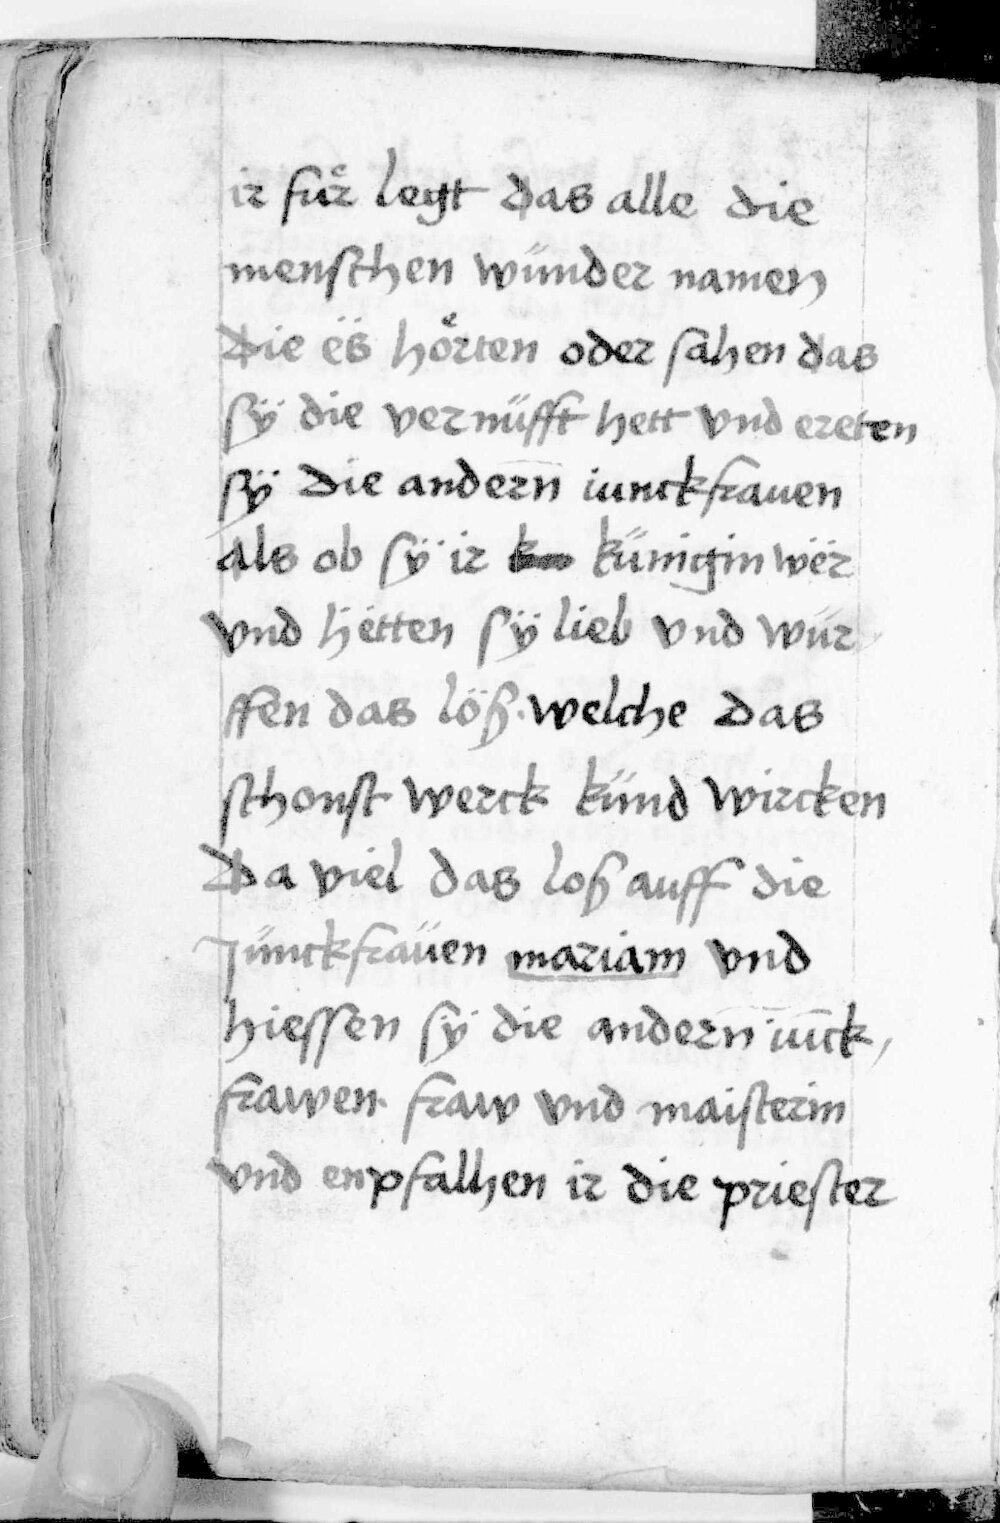 ir fuͤr legt das alle die
menschen wünder namen
die ës hoͤrten oder sahen das
sÿ die vernüfft hett vnd ereten
sÿ die andern̄ iunckfrauen
als ob sÿ ir künigin wër
vnd hëtten sÿ lieb vnd wür
ffen das löß. welche das
schonst werck künd wircken
da viel das loß auff die
Jünckfraüen mariam vnd
hiessen sÿ die andern̄ iūck,
frawen. fraw vnd maisterin
vnd enpfalhen ir die priester